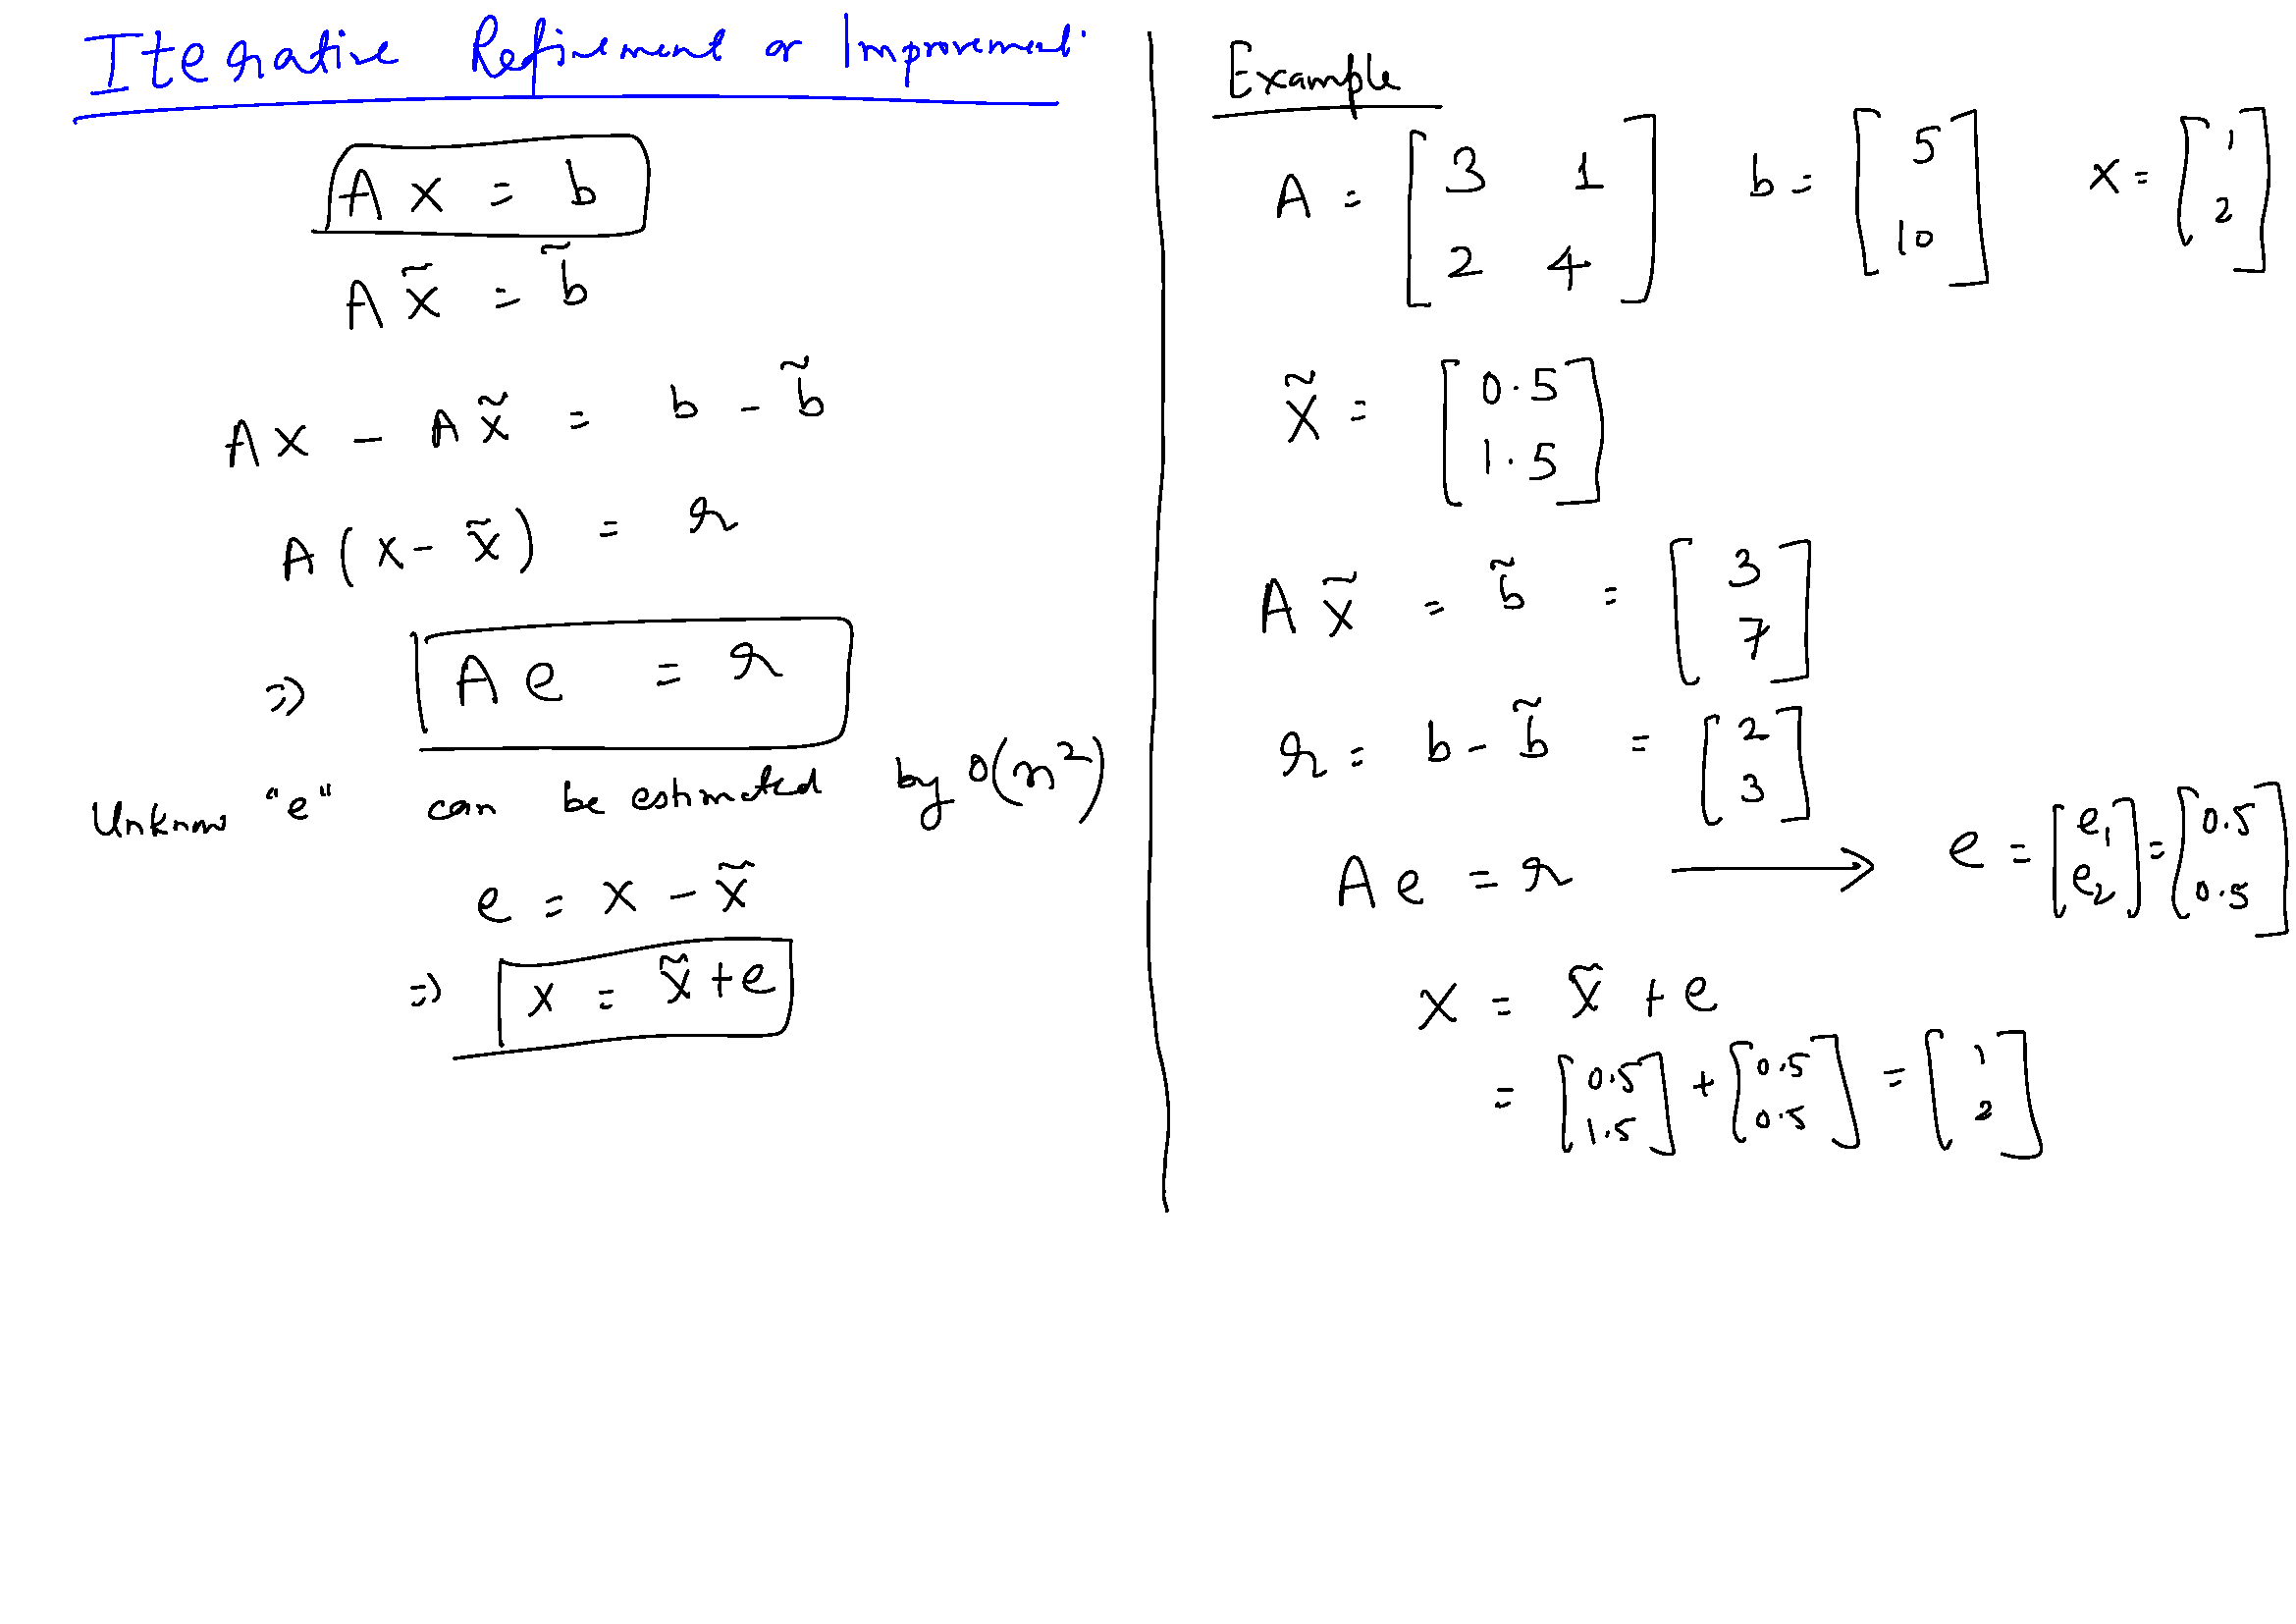 Iterative Refinement or Improvement.
A x = b
A x̃ = b̃
Ax - A x̃ = b - b̃
A(x - x̃) = r
⇒ A e = r
Unknow "e" can be estimated by O(n²)
e = x - x̃
⇒ x = x̃ + e
Example
A = [3 1; 2 4] b = [5; 10] x = [1; 2]
x̃ = [0.5; 1.5]
A x̃ = b̃ = [3; 7]
r = b - b̃ = [2; 3]
A e = r ⟶ e = [e₁; e₂] = [0.5; 0.5]
x = x̃ + e
= [0.5; 1.5] + [0.5; 0.5] = [1; 2]